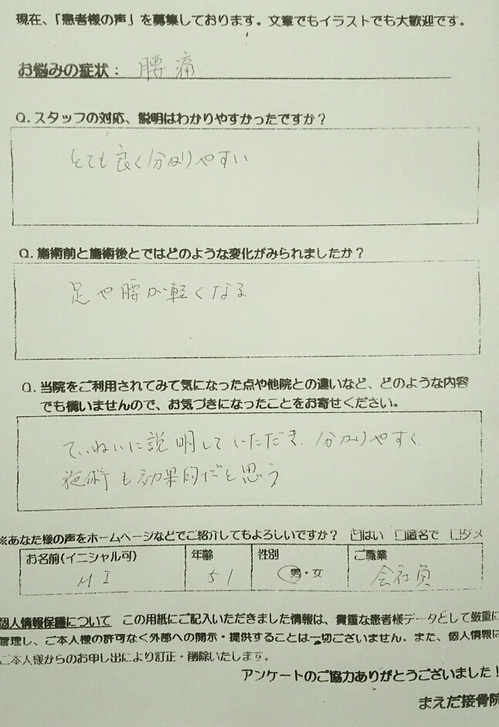 現在、「患者様の声」を募集しております。文章でもイラストでも大歓迎です。
お悩みの症状： 腰痛
Q. スタッフの対応、説明はわかりやすかったですか？
とても良く分かりやすい
Q. 施術前と施術後とではどのような変化がみられましたか？
足や腰が軽くなる
Q. 当院をご利用されてみて気になった点や他院との違いなど、どのような内容
でも構いませんので、お気づきになったことをお寄せください。
ていねいに説明していただき、分かりやすく
施術も効果的だと思う
※あなた様の声をホームページなどでご紹介してもよろしいですか？ □はい □匿名で □ダメ
お名前(イニシャル可) 年齢 性別 ご職業
M I 51 男・女 会社員
個人情報保護について この用紙にご記入いただきました情報は、貴重な患者様データとして厳重に
管理し、ご本人様の許可なく外部への開示・提供することは一切ございません。また、個人情報は
ご本人様からのお申し出により訂正・削除いたします。
アンケートのご協力ありがとうございました！
まえだ接骨院